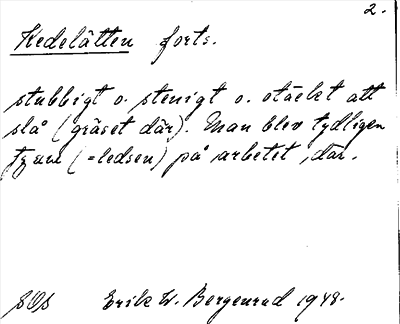 2.
Kedelätten forts.
stubbigt o. stenigt o. otäckt att
slå (gräset där). Man blev tydligen
(=ledsen) på arbetet, där.
Erik W. Bergenrud 1948.